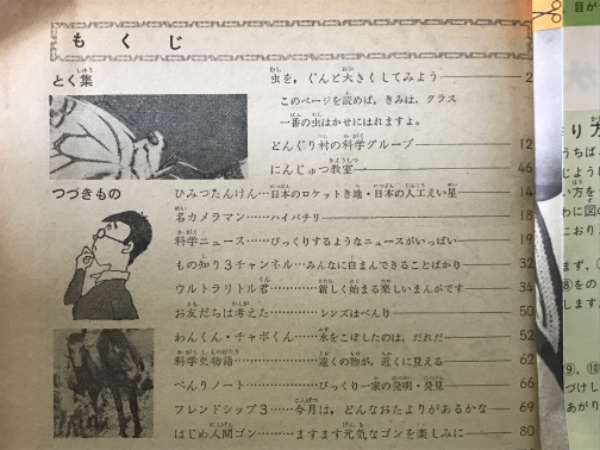 もくじ
とく集
虫を，ぐんと大きくしてみよう――2
このページを読めば，きみは，クラス
一番の虫はかせにはれますよ。
どんぐり村の科学グループ――12
にんじゅつ教室――46
つづきもの
ひみつたんけん…日本のロケットき地・日本の人工えい星――14
名カメラマン……ハイパチリ――18
科学ニュース……びっくりするようなニュースがいっぱい――19
もの知り3チャンネル…みんなに自まんできることばかり――32
ウルトラリトル君………新しく始まる楽しいまんがです――34
お友だちは考えた…………レンズはべんり――50
わんくん・チャボくん…水をこぼしたのは，だれだ――52
科学史物語……………遠くの物が，近くに見える――62
べんりノート…………びっくり一家の発明・発見――66
フレンドシップ3……今月は，どんなおたよりがあるかな――69
はじめ人間ゴン………ますます元気なゴンを楽しみに――80
目が
り方
うちば
じように
い方を
わに図の
におり
まず，
⑧をの
します
⑨，⑩
づけし
あがり